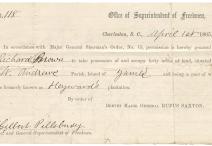 No. 118.
Office of Superintendent of Freedmen,
Charleston, S. C., April 1st 186
In accordance with Major General Sherman's Order, No. 15,
Richard Brown
to take possession of and occupy forty acres of land, situated
W. Andrews Parish, Island James and being a part of
known as Heyward's plantation
By order of
BREVET MAJOR GENERAL RUFUS SAXTON,
Gilbert Pillsbury
and General Superintendent of Freedmen.